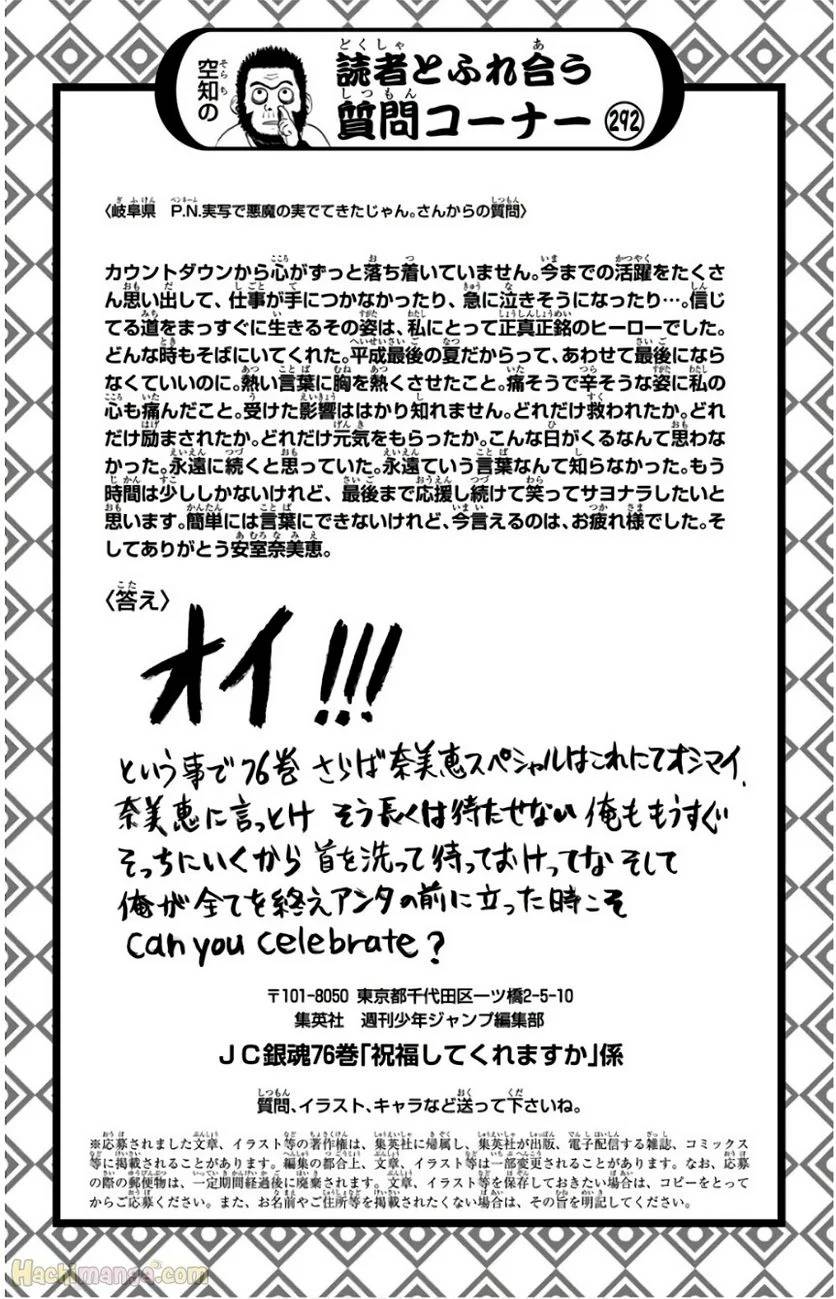 空知の
読者とふれ合う
質問コーナー 292
〈岐阜県　P.N.実写で悪魔の実でてきたじゃん。さんからの質問〉
カウントダウンから心がずっと落ち着いていません。今までの活躍をたくさ
ん思い出して、仕事が手につかなかったり、急に泣きそうになったり…。信じ
てる道をまっすぐに生きるその姿は、私にとって正真正銘のヒーローでした。
どんな時もそばにいてくれた。平成最後の夏だからって、あわせて最後になら
なくていいのに。熱い言葉に胸を熱くさせたこと。痛そうで辛そうな姿に私の
心も痛んだこと。受けた影響ははかり知れません。どれだけ救われたか。どれ
だけ励まされたか。どれだけ元気をもらったか。こんな日がくるなんて思わな
かった。永遠に続くと思っていた。永遠ていう言葉なんて知らなかった。もう
時間は少ししかないけれど、最後まで応援し続けて笑ってサヨナラしたいと
思います。簡単には言葉にできないけれど、今言えるのは、お疲れ様でした。そ
してありがとう安室奈美恵。
〈答え〉
オイ!!!
という事で76巻 さらば奈美恵スペシャルはこれにてオシマイ、
奈美恵に言っとけ そう長くは待たせない 俺ももうすぐ
そっちにいくから 首を洗って待っておけってな そして
俺が全てを終えアンタの前に立った時こそ
can you celebrate?
〒101-8050 東京都千代田区一ツ橋2-5-10
集英社　週刊少年ジャンプ編集部
ＪＣ銀魂76巻「祝福してくれますか」係
質問、イラスト、キャラなど送って下さいね。
※応募されました文章、イラスト等の著作権は、集英社に帰属し、集英社が出版、電子配信する雑誌、コミックス
等に掲載されることがあります。編集の都合上、文章、イラスト等は一部変更されることがあります。なお、応募
の際の郵便物は、一定期間経過後に廃棄されます。文章、イラスト等を保存しておきたい場合は、コピーをとって
からご応募ください。また、お名前やご住所等を掲載されたくない場合は、その旨を明記してください。
Hachimanga.com